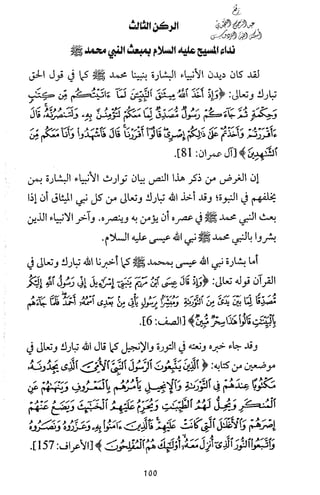 الركن الثالث
نداء المسيح عليه السلام بمبعث النبي محمد ﷺ
لقد كان ديدن الأنبياء البشارة بنبينا محمد ﷺ كما في قول الحق
تبارك وتعالى: ﴿وَإِذْ أَخَذَ اللَّهُ مِيثَاقَ النَّبِيِّينَ لَمَا آتَيْتُكُم مِّن كِتَابٍ
وَحِكْمَةٍ ثُمَّ جَاءَكُمْ رَسُولٌ مُّصَدِّقٌ لِّمَا مَعَكُمْ لَتُؤْمِنُنَّ بِهِ وَلَتَنصُرُنَّهُ قَالَ
أَأَقْرَرْتُمْ وَأَخَذْتُمْ عَلَىٰ ذَٰلِكُمْ إِصْرِي قَالُوا أَقْرَرْنَا قَالَ فَاشْهَدُوا وَأَنَا مَعَكُم مِّنَ
الشَّاهِدِينَ﴾ [آل عمران: 81].
إن الغرض من ذكر هذا النص بيان توارث الأنبياء البشارة بمن
يخلفهم في النبوة؛ وقد أخذ الله تبارك وتعالى من كل نبي الميثاق أن إذا
بعث النبي محمد ﷺ في عصره أن يؤمن به وينصره. وآخر الانبياء الذين
بشروا بالنبي محمد ﷺ نبي الله عيسى عليه السلام.
أما بشارة نبي الله عيسى بمحمد ﷺ كما أخبرنا الله تبارك وتعالى في
القرآن قوله تعالى: ﴿وَإِذْ قَالَ عِيسَى ابْنُ مَرْيَمَ يَا بَنِي إِسْرَائِيلَ إِنِّي رَسُولُ اللَّهِ إِلَيْكُم
مُّصَدِّقًا لِّمَا بَيْنَ يَدَيَّ مِنَ التَّوْرَاةِ وَمُبَشِّرًا بِرَسُولٍ يَأْتِي مِن بَعْدِي اسْمُهُ أَحْمَدُ فَلَمَّا جَاءَهُم
بِالْبَيِّنَاتِ قَالُوا هَٰذَا سِحْرٌ مُّبِينٌ﴾ [الصف: 6].
وقد جاء خبره ونعته في التورة والإنجيل كما قال الله تبارك وتعالى في
موضعين من كتابه: ﴿الَّذِينَ يَتَّبِعُونَ الرَّسُولَ النَّبِيَّ الْأُمِّيَّ الَّذِي يَجِدُونَهُ
مَكْتُوبًا عِندَهُمْ فِي التَّوْرَاةِ وَالْإِنجِيلِ يَأْمُرُهُم بِالْمَعْرُوفِ وَيَنْهَاهُمْ عَنِ
الْمُنكَرِ وَيُحِلُّ لَهُمُ الطَّيِّبَاتِ وَيُحَرِّمُ عَلَيْهِمُ الْخَبَائِثَ وَيَضَعُ عَنْهُمْ
إِصْرَهُمْ وَالْأَغْلَالَ الَّتِي كَانَتْ عَلَيْهِمْ فَالَّذِينَ آمَنُوا بِهِ وَعَزَّرُوهُ وَنَصَرُوهُ
وَاتَّبَعُوا النُّورَ الَّذِي أُنزِلَ مَعَهُ أُولَٰئِكَ هُمُ الْمُفْلِحُونَ﴾ [الأعراف: 157].
155